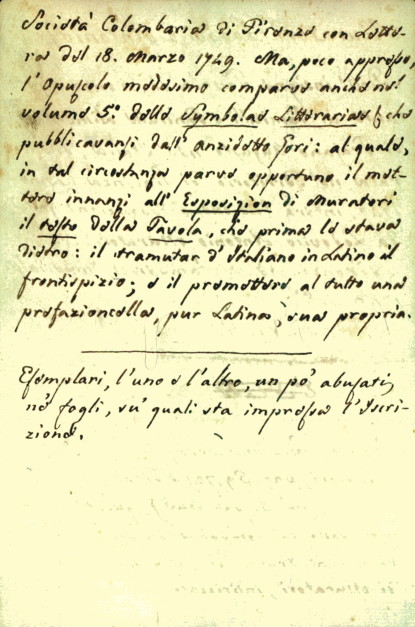 Società Colombaria di Firenze con Lette-
ra del 18. Marzo 1749. Ma, poco appresso,
l'Opuscolo medesimo comparve anche nel
volume 5.° delle Symbolae Litterariae, che
pubblicavansi dall'anzidetto Gori: al quale,
in tal circostanza parve opportuno il met-
tere innanzi all'Esposizion di Muratori
il testo della Tavola, che prima le stava
dietro: il tramutar d'Italiano in Latino il
frontispizio; e il premettere al tutto una
prefazioncella, pur Latina, sua propria.
Esemplari, l'uno e l'altro, un po' abusati,
ne' fogli, su' quali sta impressa l'Iscri-
zione.